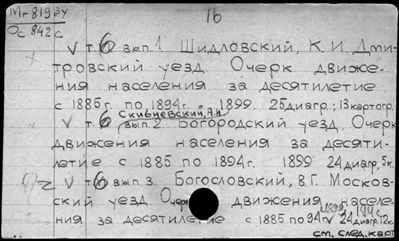 Mг 819
Ос 842с
16
V т.6 вып.1. Шидловский, К.И. Дми-
тровский уезд. Очерк движе-
ния населения за десятилетие
с 1885г. по 1894г. 1899. 25диагр.; 13картогр.
Скибневский, А.И.
V т.6 вып.2. Богородский уезд. Очерк
движения населения за десяти-
летие с 1885 по 1894г. 1899 24диагр, 5к.
V т.6 вып.3. Богословский, В.Г. Москов-
ский уезд. Очерк движения населе-
ния за десятиление с 1885 по 94г. 24диагр. 12к.
см. след. карт